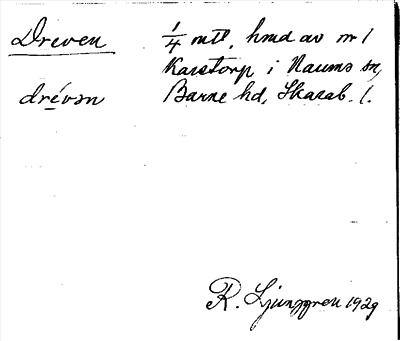 Dreven
1/4 mtl, hmd av nr 1
Karstorp i Naums sn,
drévən
Barne hd, Skarab. l.
R. Ljunggren 1929